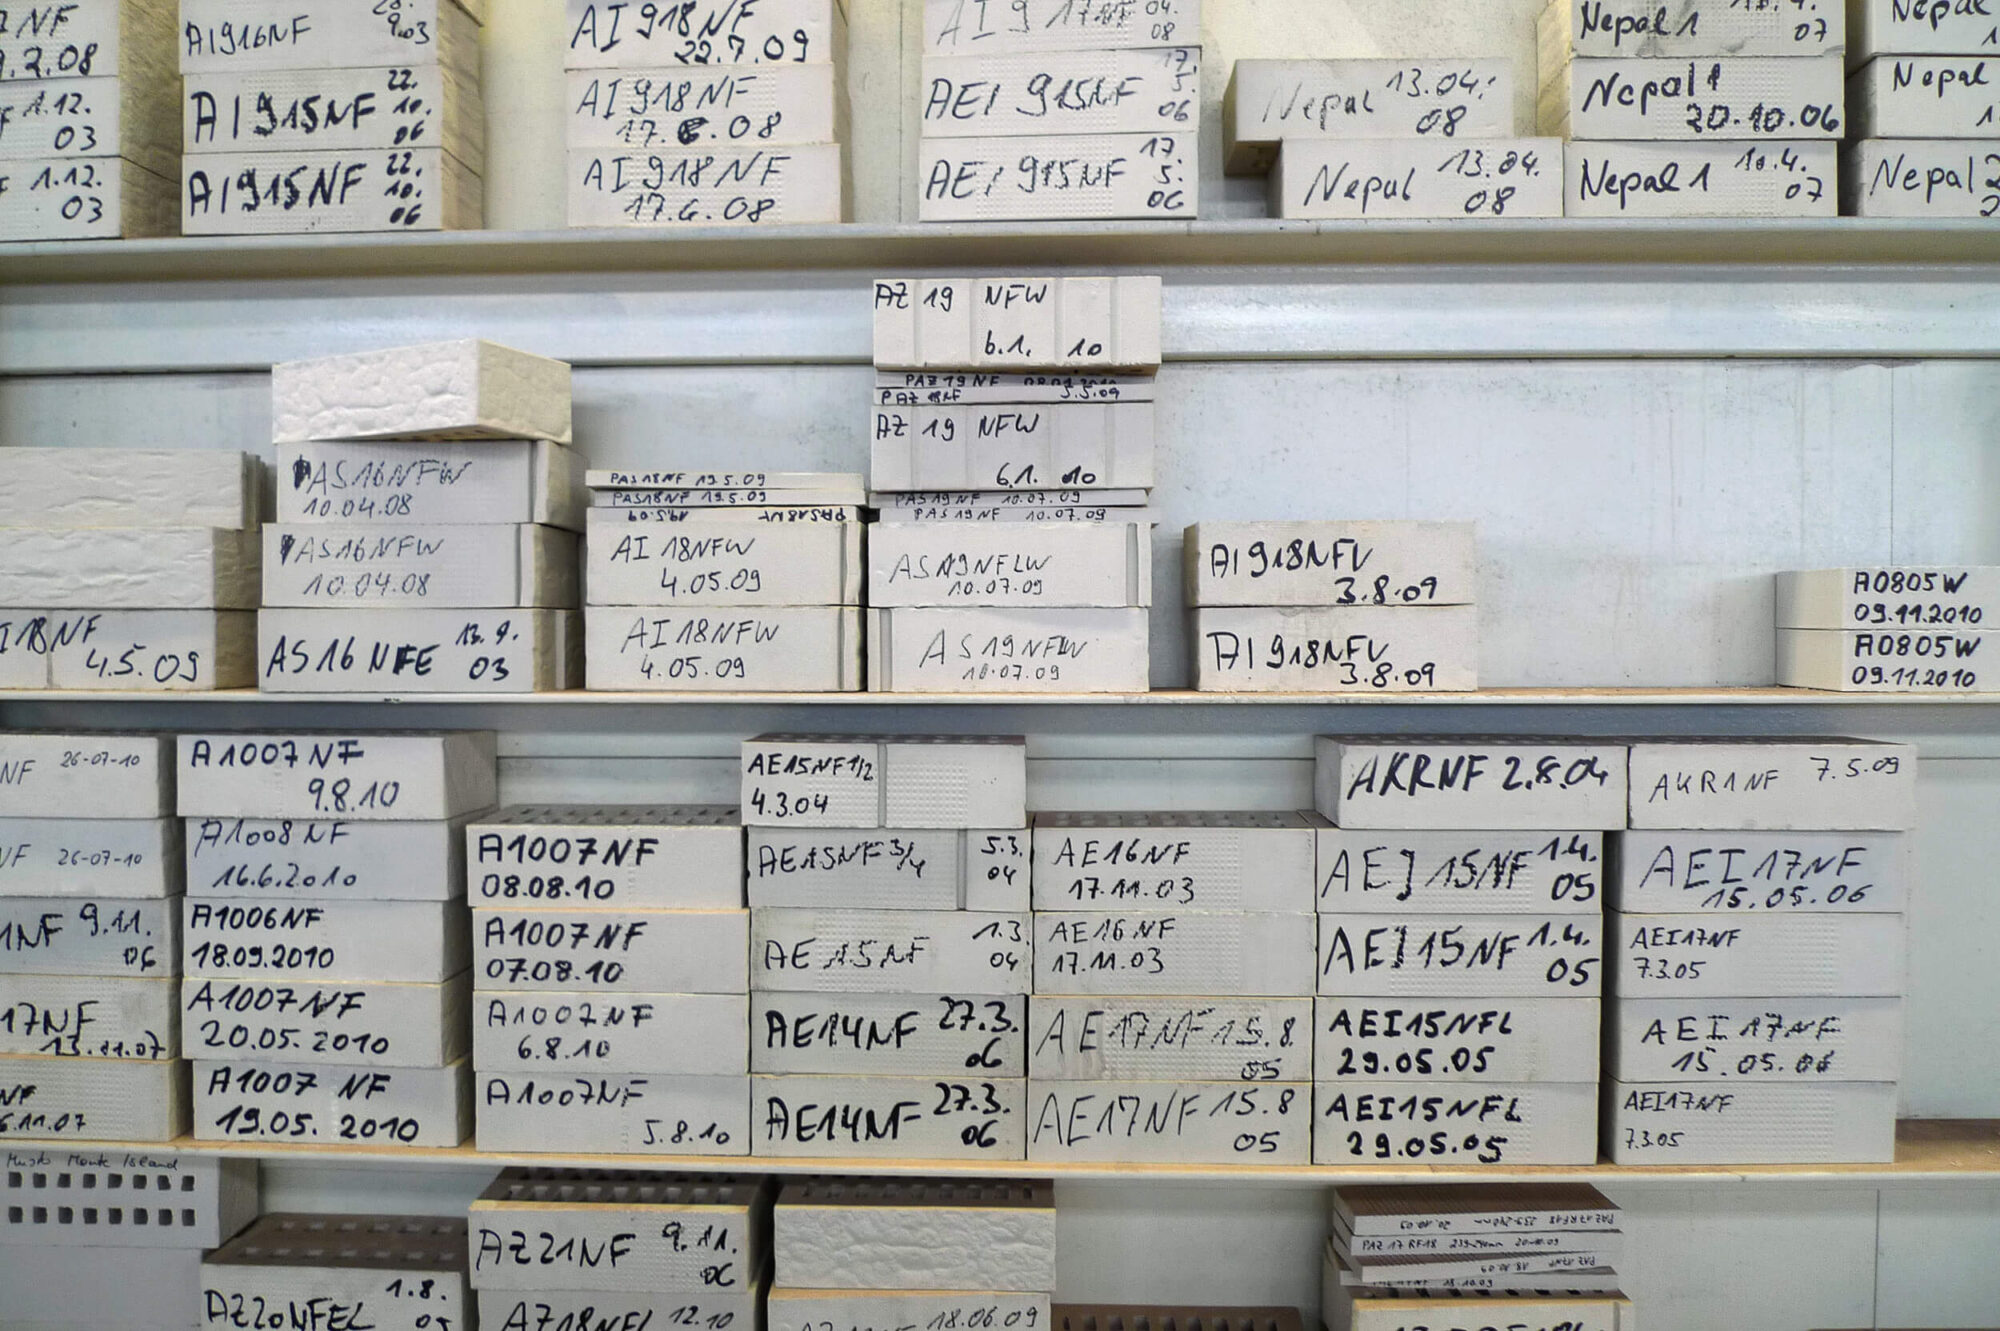 NF
9.2.08
1.12.
03
1.12.
03
AI916NF
9.03
AI915NF 22.
10.
06
AI915NF 22.
10.
06
AI918NF
22.7.09
AI918NF
17.6.08
AI918NF
17.6.08
AEI 917NF 04.
08
AEI 915NF 17.
5.
06
AEI 915NF 17.
5.
06
Nepal 13.04.
08
Nepal 13.04.
08
Nepal 1
07
Nepal 1
20.10.06
Nepal 1 10.4.
07
Nepal
Nepal
Nepal 2
I18NF
4.5.09
AS16NFW
10.04.08
AS16NFW
10.04.08
AS16NFE 13.9.
03
PAS18NF 19.5.09
PAS18NF 19.5.09
PAS18NF 19.5.09
AI 18NFW
4.05.09
AI 18NFW
4.05.09
AZ 19 NFW
6.1. 10
PAZ 19 NF
PAZ 18NF 5.5.09
AZ 19 NFW
6.1. 10
PAS19NF 10.07.09
PAS19NF 10.07.09
AS19NFLW
10.07.09
AS19NFLW
10.07.09
AI918NFV
3.8.09
AI918NFV
3.8.09
A0805W
09.11.2010
A0805W
09.11.2010
NF 26-07-10
NF 26-07-10
1NF 9.11.
06
17NF
13.11.07
NF
6.11.07
A1007NF
9.8.10
A1008NF
16.6.2010
A1006NF
18.09.2010
A1007NF
20.05.2010
A1007 NF
19.05. 2010
A1007NF
08.08.10
A1007NF
07.08.10
A1007NF
6.8.10
A1007NF
5.8.10
AE15NF1/2
4.3.04
AE15NF3/4 5.3.
04
AE15NF 1.3.
04
AE14NF 27.3.
06
AE14NF 27.3.
06
AE16NF
17.11.03
AE16NF
17.11.03
AE17NF 15.8.
05
AE17NF 15.8
05
AKRNF 2.8.04
AEI15NF 1.4.
05
AEI15NF 1.4.
05
AEI15NFL
29.05.05
AEI15NFL
29.05.05
AKR1NF 7.5.09
AEI17NF
15.05.06
AEI17NF
7.3.05
AEI17NF
15.05.06
AEI17NF
7.3.05
Island
AZ20NFEL 1.8.
AZ21NF 9.11.
06
AZ18NFL 12.10
18.06.09
PAZ17RF18 239-240mm 20.10.09
PAZ17RF18 239-240mm 20.10.09
PAZ17NF 18.10.09
18.10.09